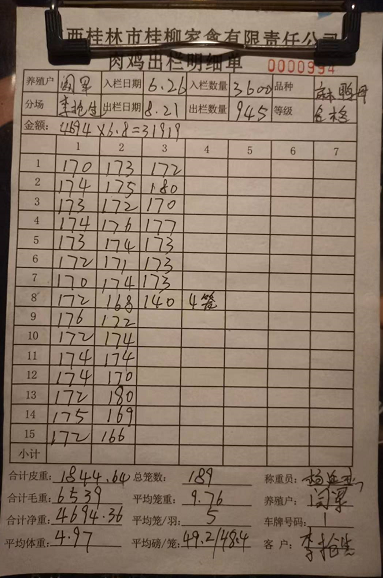 西桂林市桂柳家禽有限责任公司
肉鸡出栏明细单
0000994
养殖户 闫军 入栏日期 6.26 入栏数量 3600 品种
分场 出栏日期 8.21 出栏数量 945 等级 合格
金额: 4694×6.8=31919
1 2 3 4 5 6 7
1 170 173 172
2 174 175 180
3 173 172 170
4 174 176 177
5 173 174 173
6 172 171 173
7 170 174 173
8 172 168 140 4笼
9 176 172
10 172 174
11 174 174
12 174 170
13 172 180
14 175 169
15 172 166
小计
合计皮重: 1844.64 总笼数: 189 称重员:
合计毛重: 6539 平均笼重: 9.76 养殖户: 闫军
合计净重: 4694.36 平均笼/羽: 5 车牌号码:
平均体重: 4.97 平均磅/笼: 49.2/48.4 客 户: